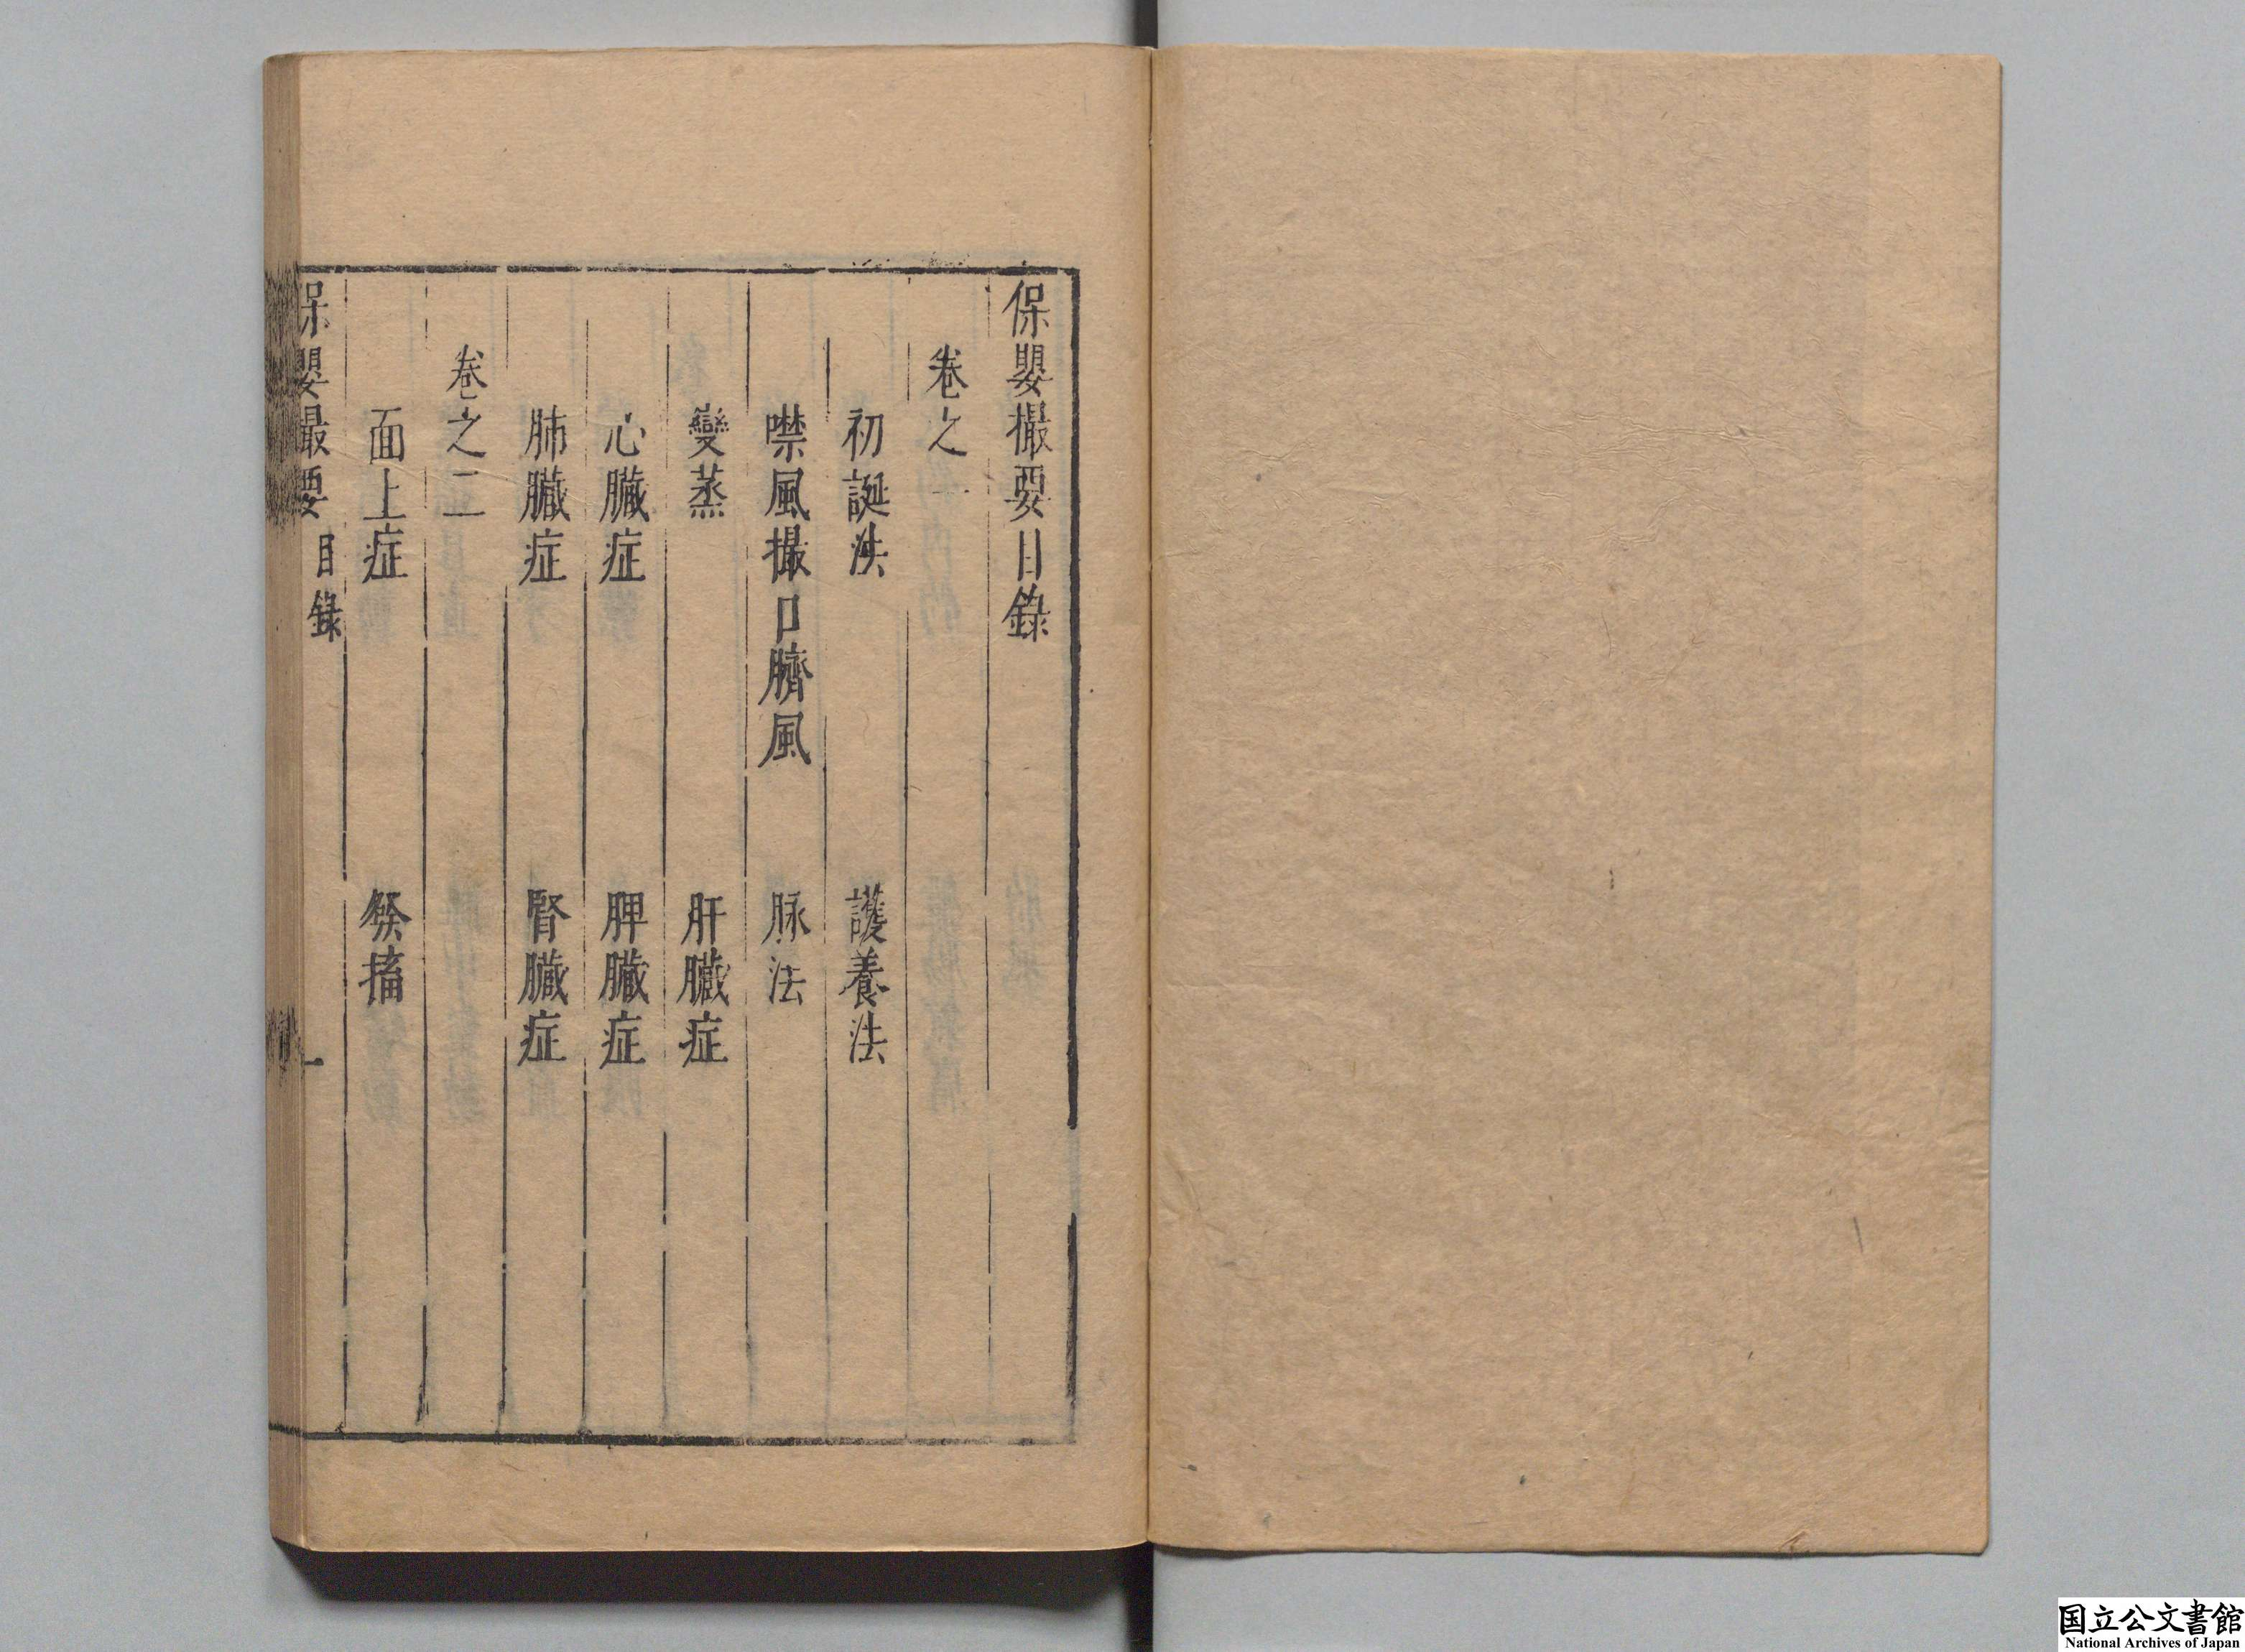 保嬰撮要目錄
卷之一
初誕法　護養法
噤風撮口臍風　脉法
變蒸　肝臟症
心臟症　脾臟症
肺臟症　腎臟症
卷之二
面上症　發搐
保嬰撮要　目錄　一
国立公文書館
National Archives of Japan